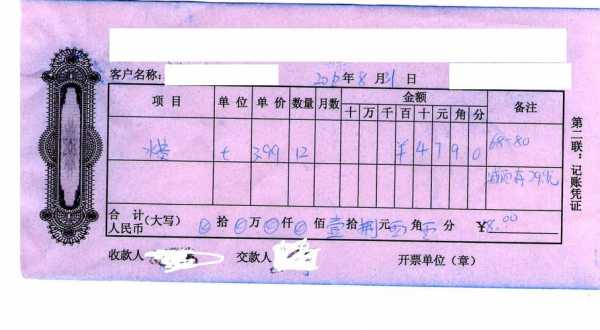 客户名称: 年 8 月 31 日
项 目 单 位 单 价 数量 月数 金额 备注
十 万 千 百 十 元 角 分
t 3.99 12 ¥ 4 7 9 0 68-80
合 计 人民币 (大写) 拾 万 仟 佰 壹 拾 捌 元 角 分 ¥ 8.00
收款人 交款人 开票单位(章)
第二联:记账凭证